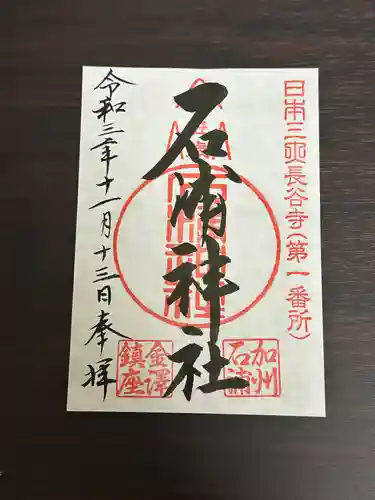 日本三所長谷寺(第一番所)
石浦神社
加州
石浦
金澤
鎮座
令和三年十一月十三日奉拝